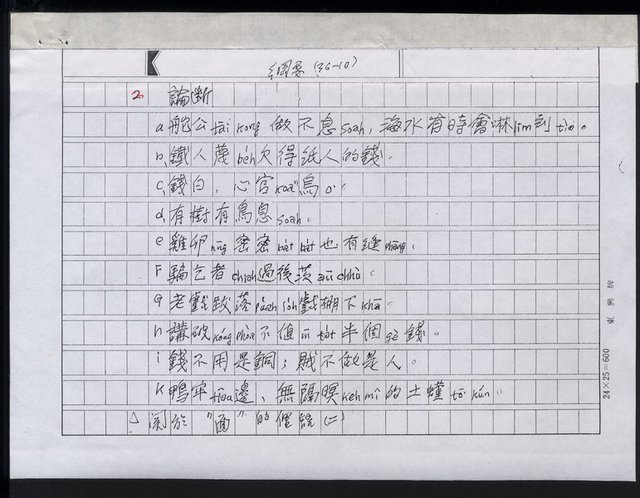 綱要(36-10)
2. 論斷
a 舵公tāi kong做不息soah,海水有時會啉lim到tio̍。
b, 鐵人蔑beh欠得紙人的錢.
c, 錢白、心官koaⁿ烏o͘.
d, 有樹有鳥息soah.
e 雞卵nn̄g密密ba̍t ba̍t也有縫phāng.
F 騙乞者chiah過後茨āu chhù.
g 老戲跋落loeh戲棚下khā.
h 講破kóng phòa不值m̄ ta̍t半個錢。
i 錢不用是銅;賊不做是人。
k 鴨牢tiâu邊、無隔暝keh mî的土蟺tō͘ kún.
△ 関於"面"的俚語(二)
24×25=600